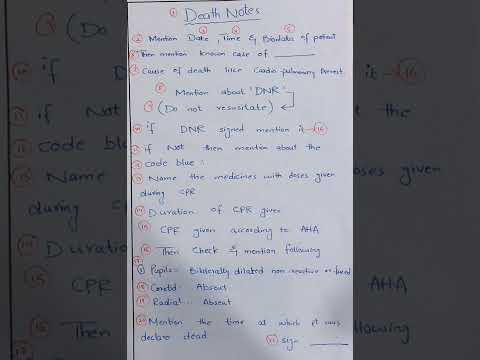 ① Death Notes
② Mention Date ③, Time ④ & Biodata ⑤ of patient
⑥ Then mention known case of ______
⑦ Cause of death like Cardio pulmonary Arrest.
⑧ Mention about "DNR"
⑨ (Do not resusitate)
⑩ if DNR signed mention it — ⑯
⑪ if Not then mention about the
⑫ code blue :
⑬ Name the medicines with doses given
during CPR
⑭ Duration of CPR given
⑮ CPR given according to AHA
⑯ Then Check & mention following
⑰
Pupils :- Bilaterally dilated non reactive
⑱ Carotid :- Absent
⑲ Radial :- Absent
⑳ Mention the time at which pt was
declare dead.
㉑ sign ______